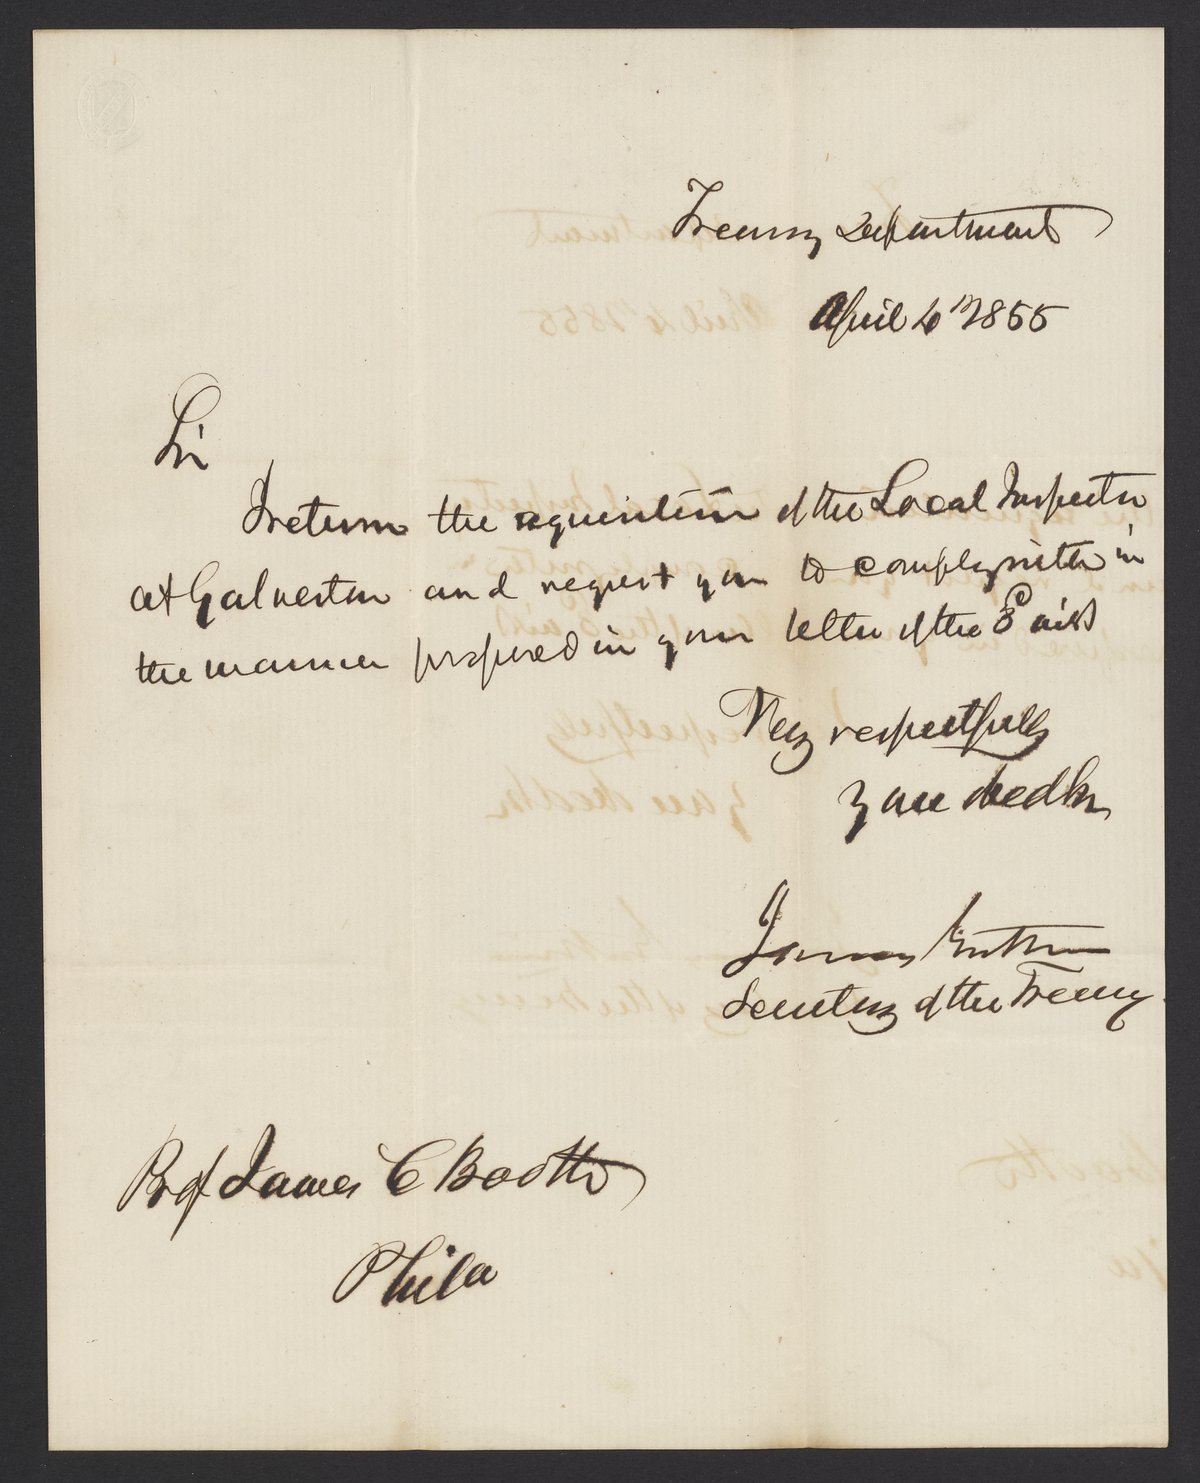 Treasury Department
April 4th 1855
Sir
I return the requisition of the Local Inspector
at Galveston and request you to comply with in
the manner proposed in your letter of the 3d inst
Very respectfully
Your obed Sr
James Guthrie
Secretary of the Treasury
Prof James C Booth
Phila